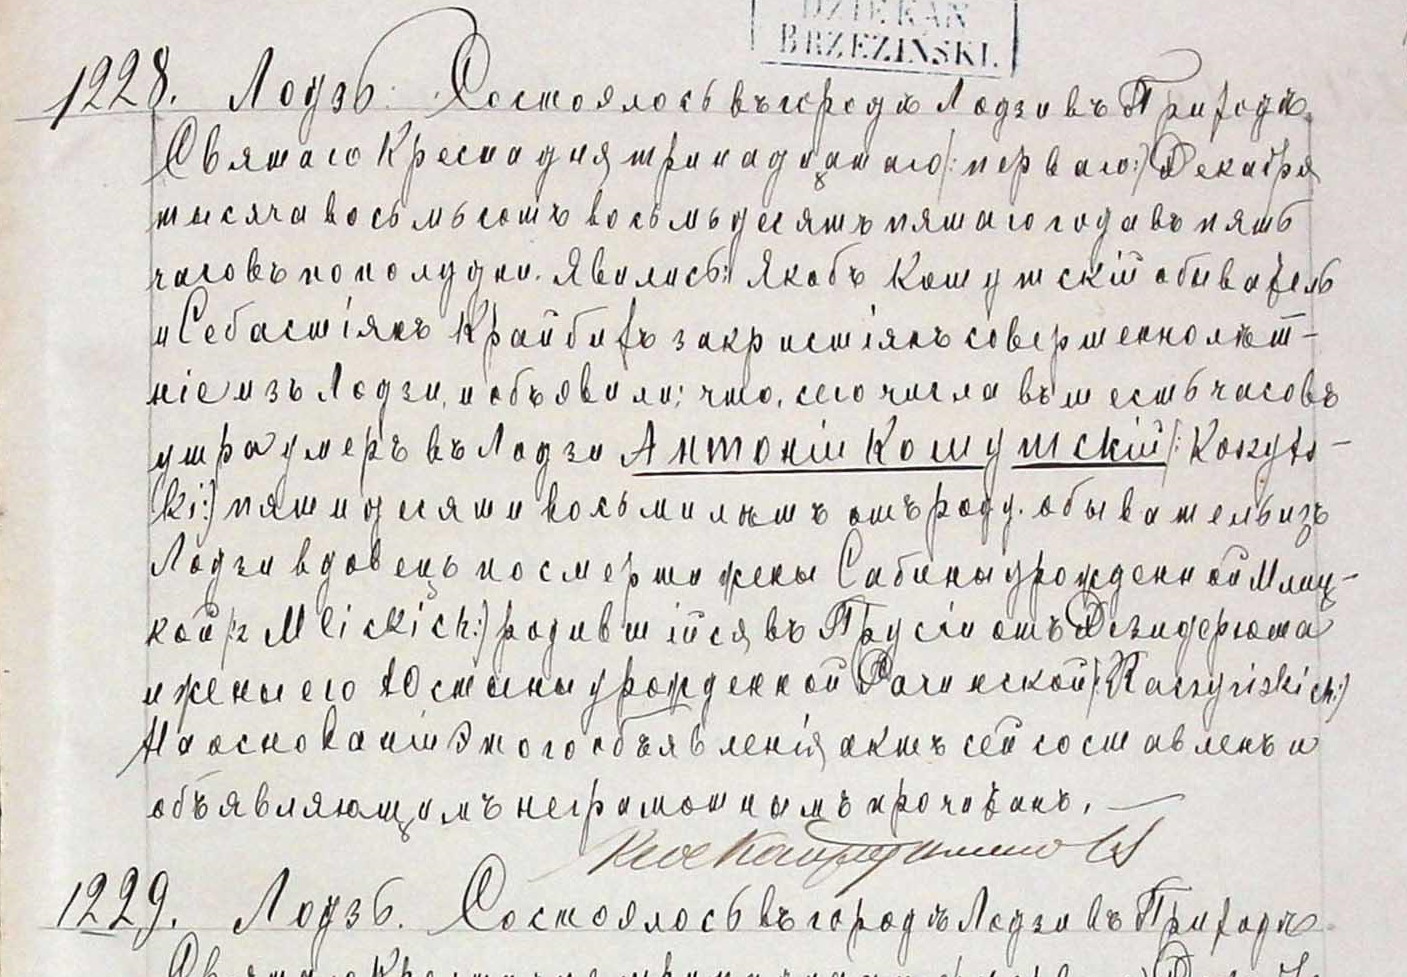 DZIEKAN
BRZEZIŃSKI.
1228. Лодзь. Состоялось въ городѣ Лодзи въ Приходѣ
Святаго Креста дня тринадцатаго /: перваго :/ Декабря
тысяча восьмьсотъ восьмьдесятъ пятаго года въ пять
часовъ пополудни. Явились: Якобъ Кошутскій обыватель
и Себастіянъ Крайбихъ закристіянъ совершеннолѣт-
ніе изъ Лодзи, и объявили; что, сего числа въ шесть часовъ
утра умеръ въ Лодзи Антоній Кошутскій /: Koszuts-
ki :/ пятидесяти восьми лѣтъ отъ роду. обыватель изъ
Лодзи вдовецъ по смерти жены Сабины урожденной Млиц-
кой /: z Mlickich :/ родившійся въ Пруссіи отъ Дезидерюша
и жены его Юстыны урожденной Рачинской /: Raczyńskich :/
На основаніи этого объявленія актъ сей составленъ и
объявляющимъ неграмотнымъ прочитанъ.
1229. Лодзь. Состоялось въ городѣ Лодзи въ Приходѣ